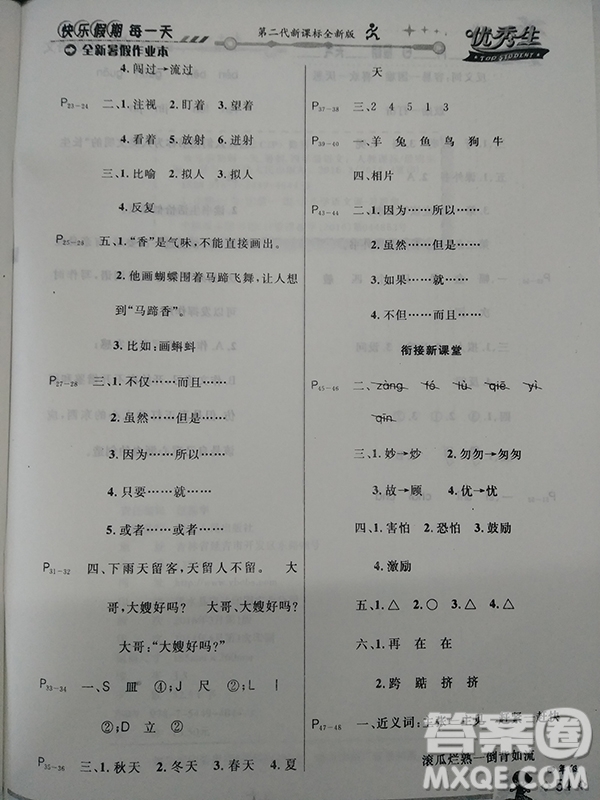 快乐假期 每一天
全新暑假作业本
第二代新课标全新版
优秀生
TOP STUDENT
4. 闯过→流过
P23-24 二、1. 注视 2. 盯着 3. 望着
4. 看着 5. 放射 6. 迸射
三、1. 比喻 2. 拟人 3. 拟人
4. 反复
P25-26 五、1. “香”是气味，不能直接画出。
2. 他画蝴蝶围着马蹄飞舞，让人想
到“马蹄香”。
3. 比如：画蝌蚪
P27-28 三、1. 不仅……而且……
2. 虽然……但是……
3. 因为……所以……
4. 只要……就……
5. 或者……或者……
P31-32 四、下雨天留客，天留人不留。 大
哥，大嫂好吗？ 大哥大嫂好吗？
大哥：“大嫂好吗？”
P33-34 一、S 皿 ④；J 尺 ②；L 丨
②；D 立 ②
P35-36 三、1. 秋天 2. 冬天 3. 春天 4. 夏
天
P37-38 三、2 4 5 1 3
P39-40 一、羊 兔 鱼 鸟 狗 牛
四、相片
P43-44 二、1. 因为……所以……
2. 虽然……但是……
3. 如果……就……
4. 不但……而且……
衔接新课堂
P45-46 二、zàng fó lù qiē yì
qīn
三、1. 妙→炒 2. 勿勿→匆匆
3. 故→顾 4. 优→忧
四、1. 害怕 2. 恐怕 3. 鼓励
4. 激励
五、1. △ 2. ○ 3. △ 4. △ 5. △
六、1. 再 在 在
2. 跨 踮 挤 挤
P47-48 一、近义词：
滚瓜烂熟—倒背如流
答案圈
MXQE.COM